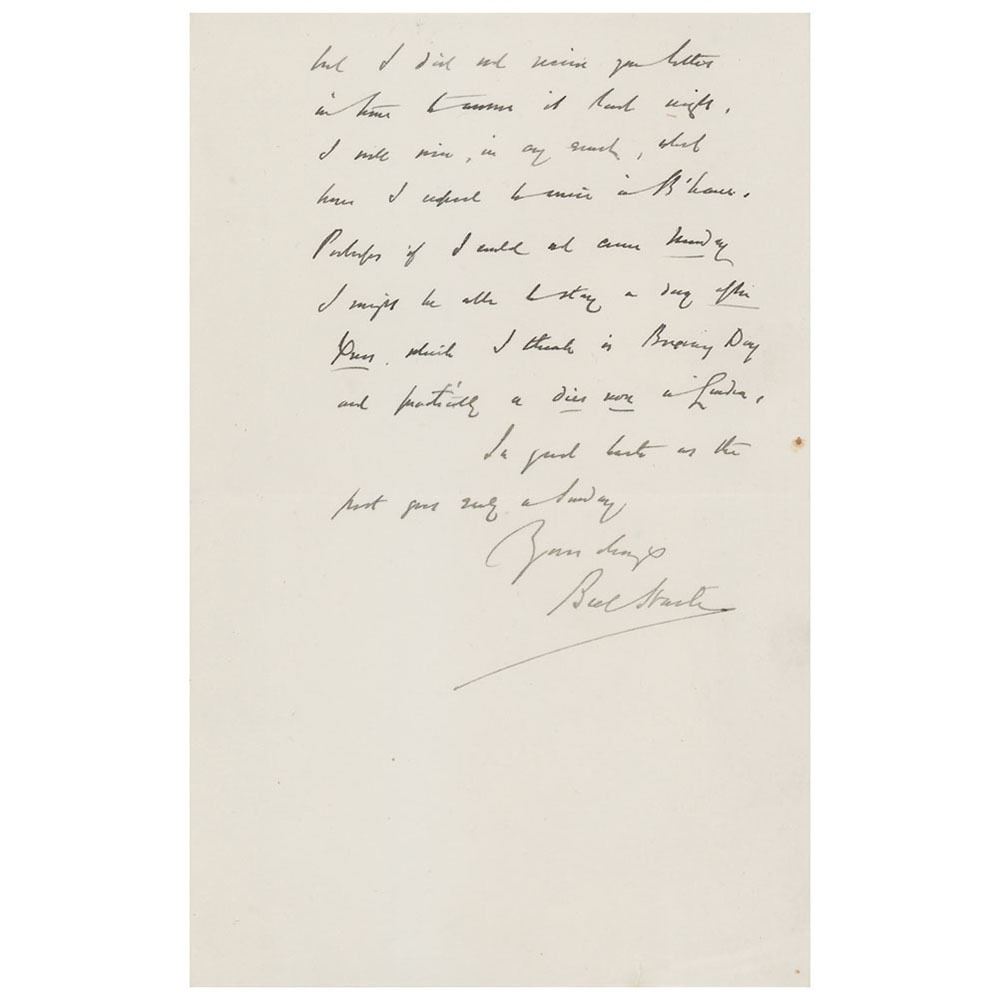 but I did not receive your letter
in time to answer it last night.
I will wire, in any event, what
hour I expect to arrive in B'ham.
Perhaps if I could not come Sunday
I might be able to stay a day after
Xmas, which I think is Boxing Day
and practically a dies non in London.
In great haste as the
post goes early on Sunday,
Yours always
Bret Harte